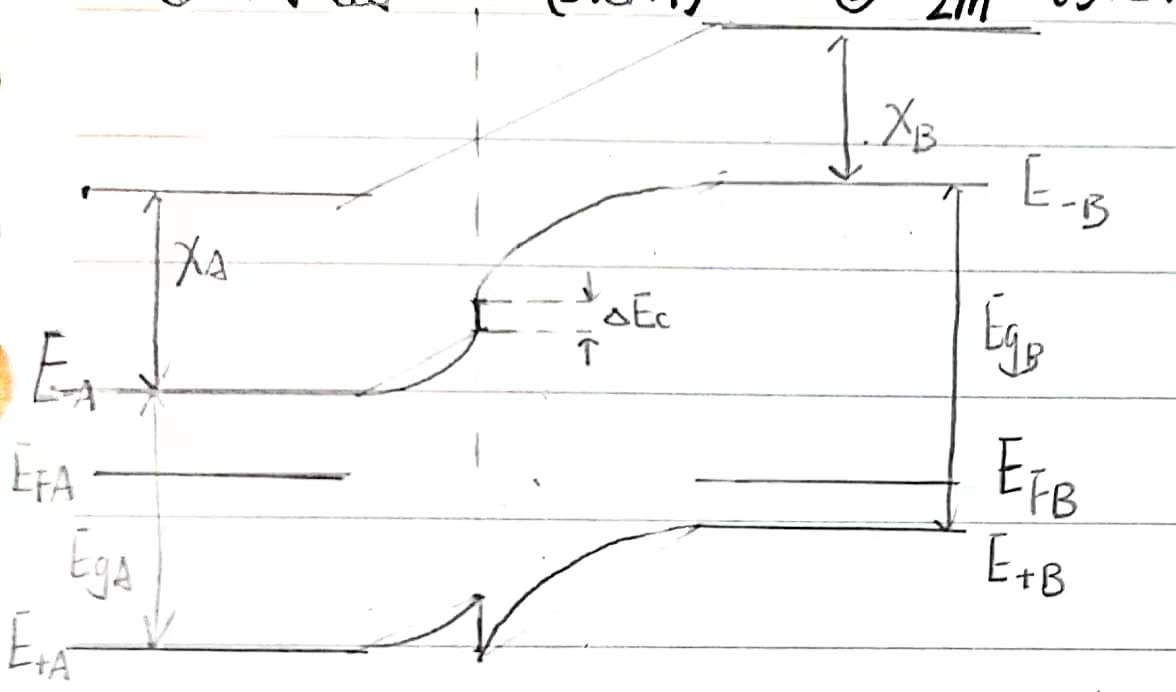 χ_B
E_-B
χ_A
ΔEc
E_gB
E_-A
E_FA
E_FB
E_gA
E_+B
E_+A